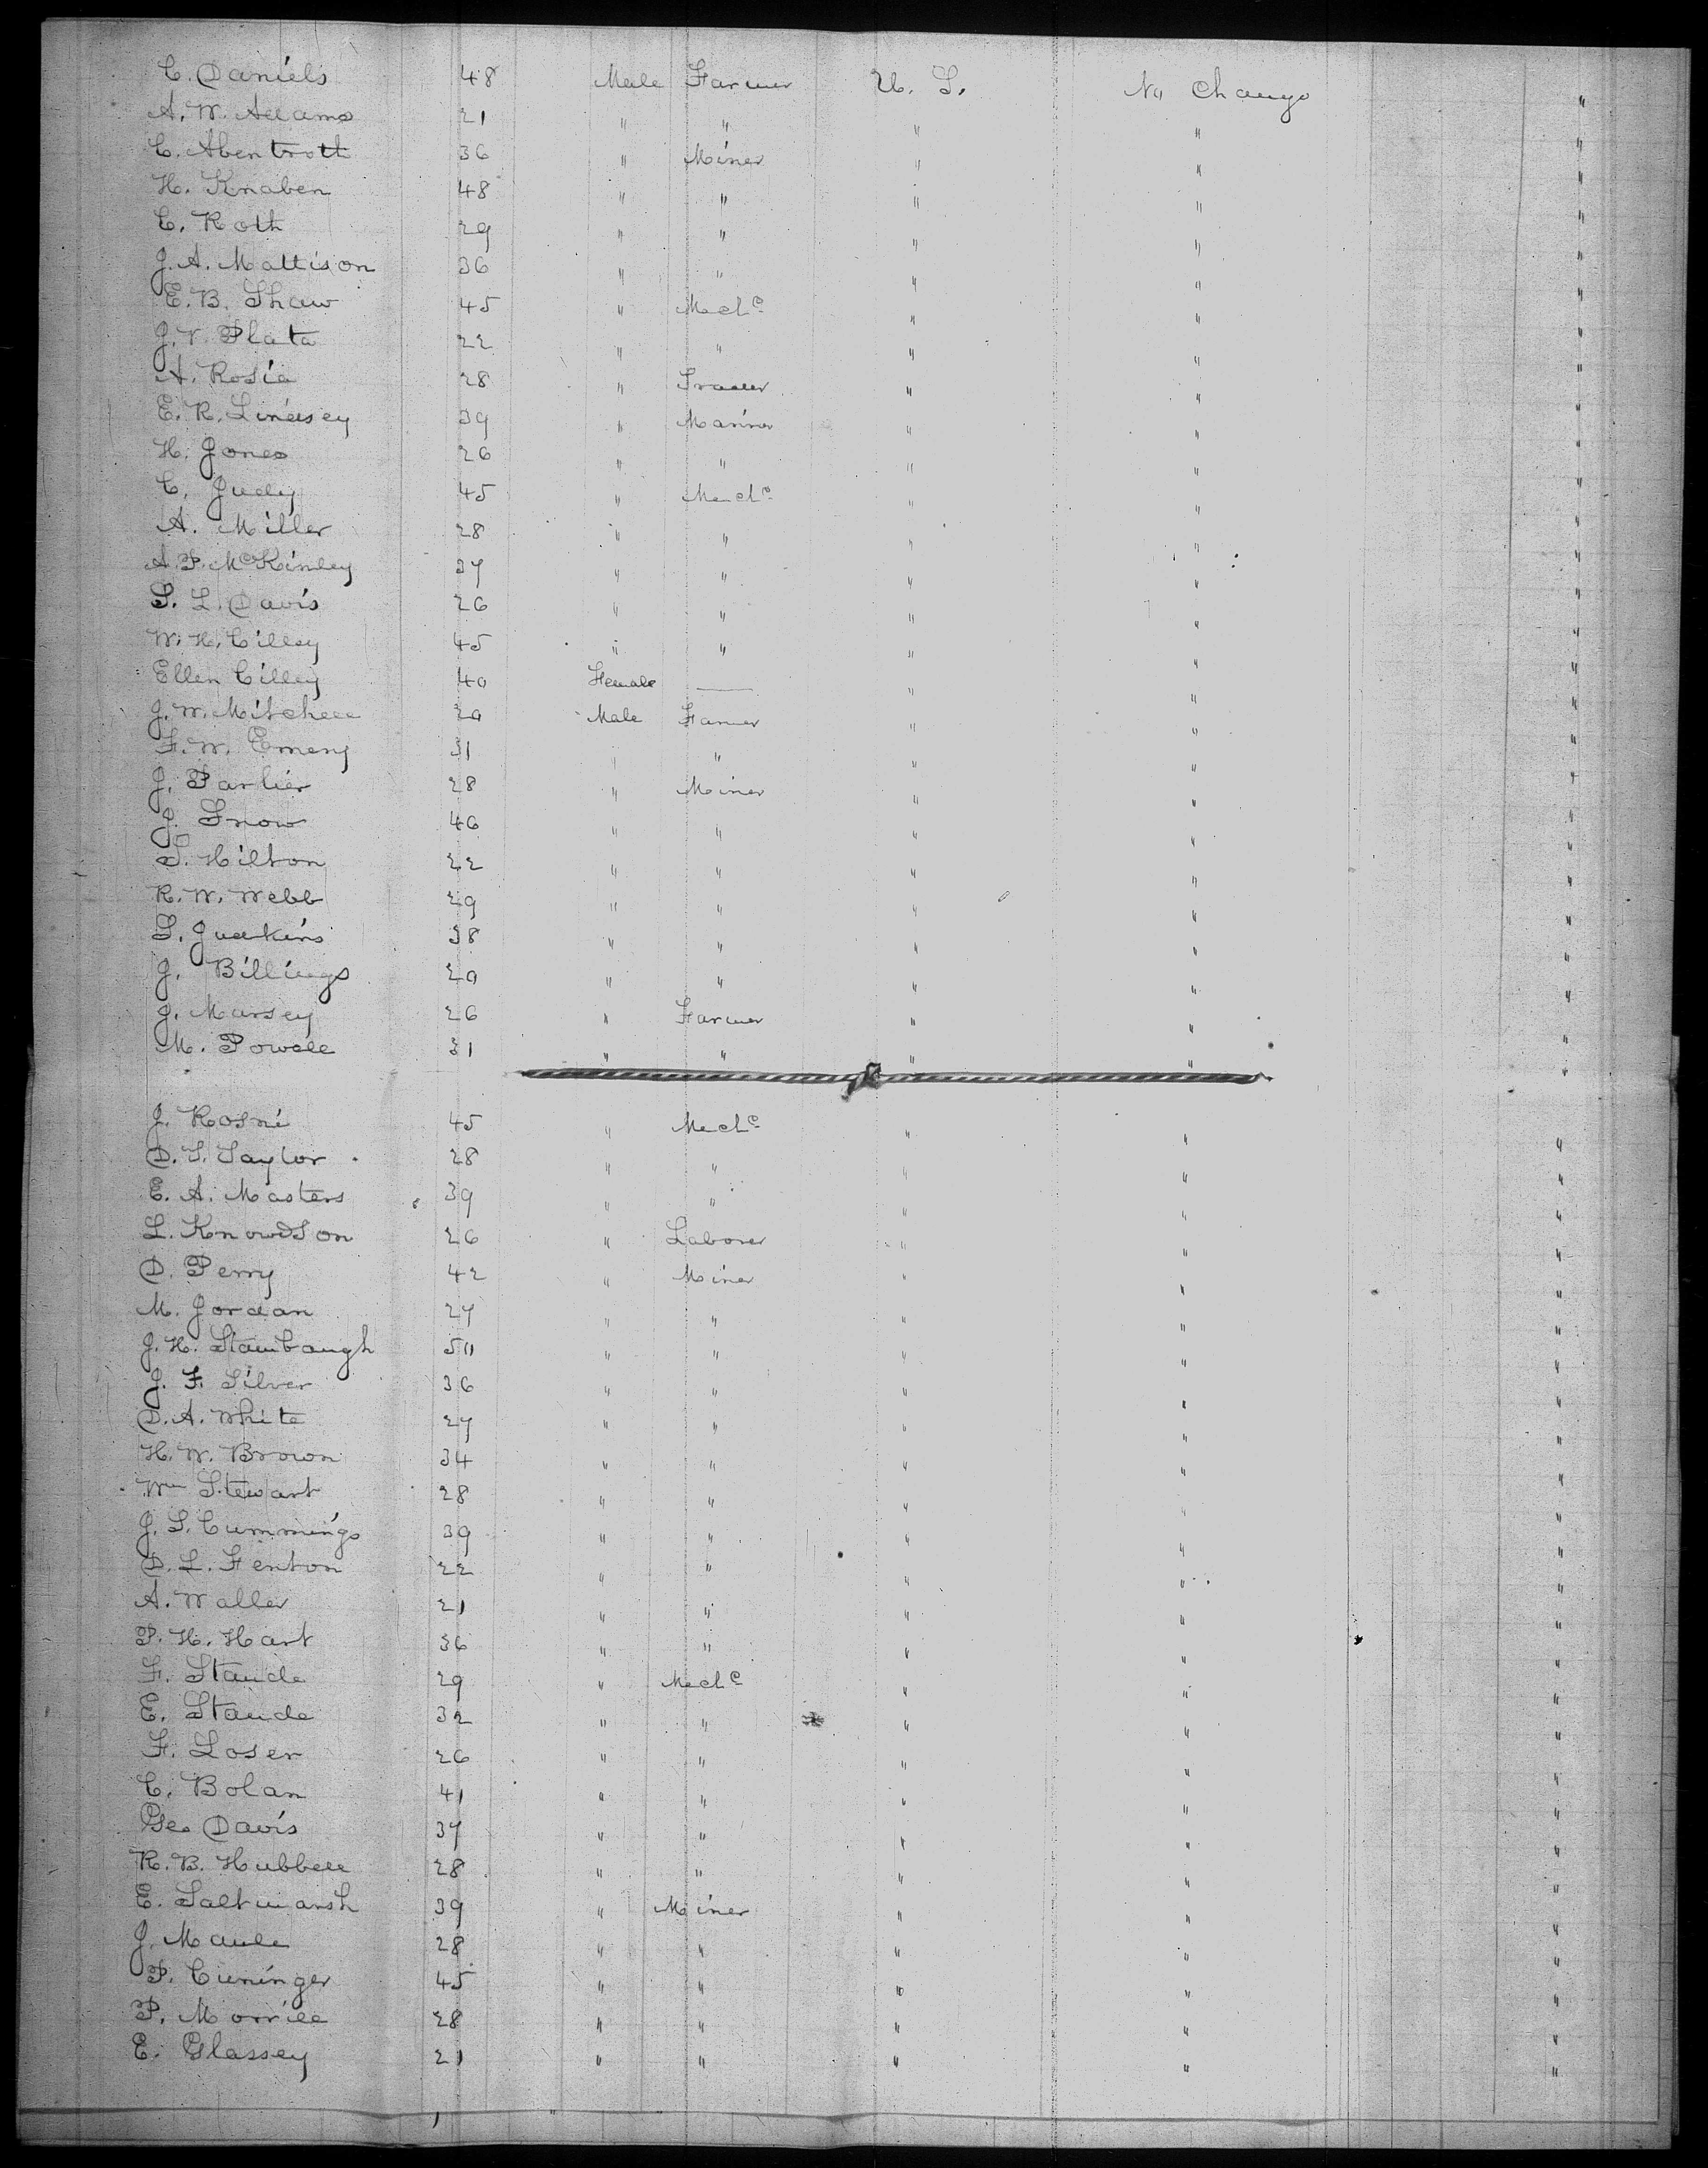 C. Daniels 48 Male Farmer U. S. No Change "
A. W. Adams 21 " " " " "
C. Abentroth 36 " Miner " " "
H. Knaben 48 " " " " "
C. Roth 29 " " " " "
J. A. Mattison 36 " " " " "
E. B. Shaw 45 " Mechc " " "
J. V. Plata 22 " " " " "
A. Rosia 28 " Trader " " "
E. R. Lindsey 39 " Mariner " " "
H. Jones 26 " " " " "
C. Judy 45 " Mechc " " "
A. Miller 28 " " " " "
A. P. McKinley 37 " " " " "
S. L. Davis 26 " " " " "
W. H. Cilley 45 " " " " "
Ellen Cilley 40 Female — " " "
J. W. Mitchell 20 Male Farmer " " "
F. W. Emery 31 " " " " "
J. Parlier 28 " Miner " " "
J. Snow 46 " " " " "
S. Hilton 22 " " " " "
R. W. Webb 29 " " " " "
S. Judkins 38 " " " " "
J. Billings 20 " " " " "
J. Marsey 26 " Farmer " " "
M. Powell 31 " " " " "
J. Rosni 45 " Mechc " " "
D. S. Taylor 28 " " " " "
E. A. Masters 39 " " " " "
L. Knowdson 26 " Laborer " " "
D. Perry 42 " Miner " " "
M. Jordan 27 " " " " "
J. H. Stambaugh 50 " " " " "
J. F. Silver 36 " " " " "
D. A. White 27 " " " " "
H. W. Brown 34 " " " " "
Wm Stewart 28 " " " " "
J. S. Cummings 39 " " " " "
D. L. Fenton 22 " " " " "
A. Waller 21 " " " " "
P. H. Hart 36 " " " " "
F. Staude 29 " Mechc " " "
E. Staude 32 " " " " "
F. Loser 26 " " " " "
C. Bolan 41 " " " " "
Geo Davis 37 " " " " "
R. B. Hubbell 28 " " " " "
E. Saltmarsh 39 " Miner " " "
J. Maule 28 " " " " "
P. Cuninger 45 " " " " "
P. Morrill 28 " " " " "
E. Glassey 21 " " " " "